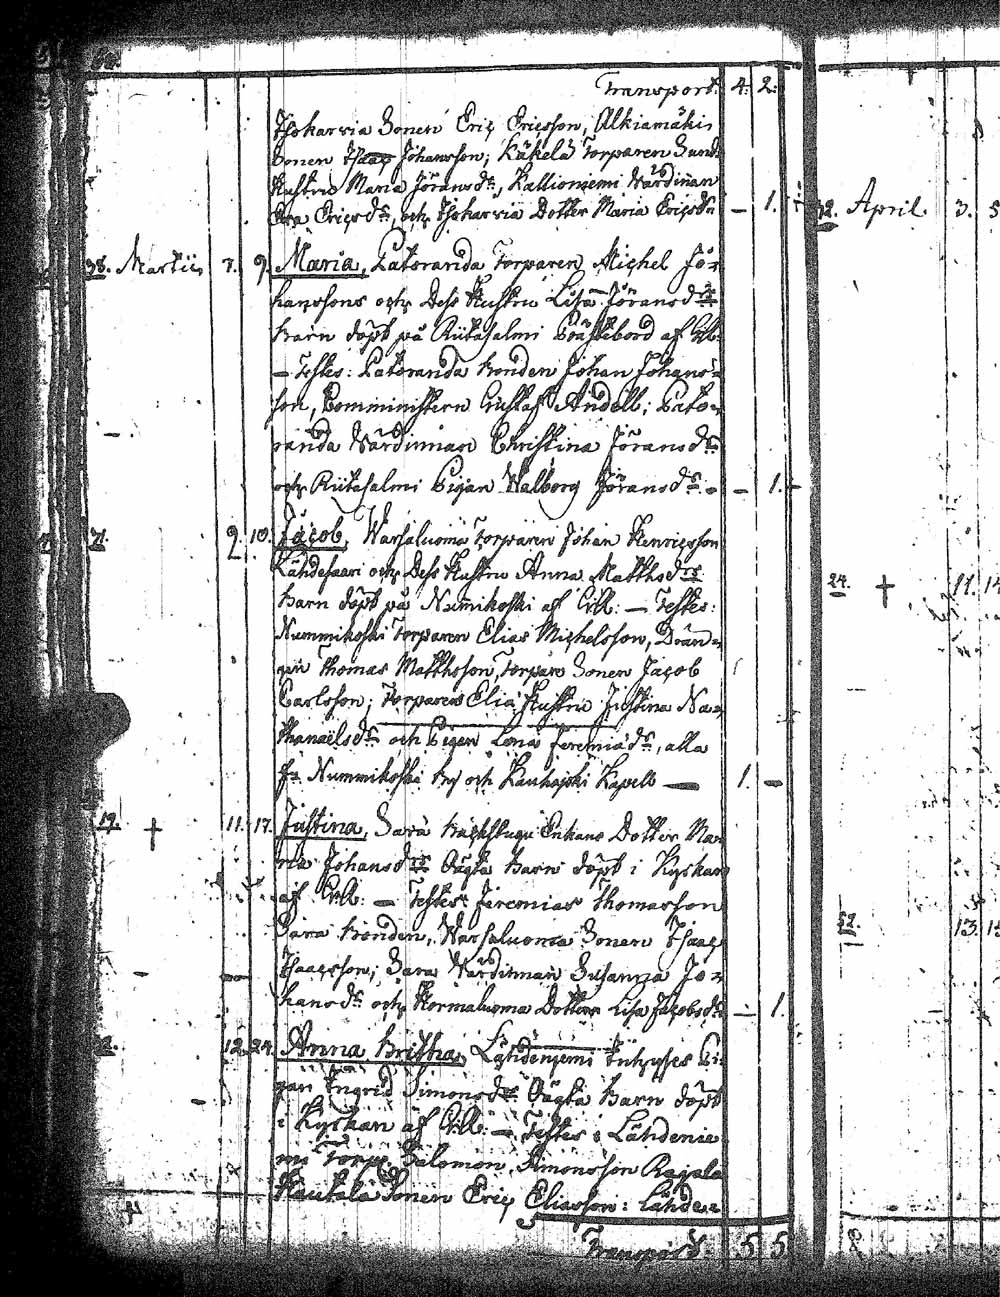 Transport. 4. 2.
Isokarvia Sonen Eriç Ericsson, Alkiamäki
Sonen Isaac Johansson; Käkelä Torparen Sund
Hustru Maria Jöransdr, Kallioniemi Värdinnan
Eva Ericsdr, och Isokarvia Dotter Maria Ericsdr — 1.
38. Martii 7. 9. Maria, Patoranda Torparen Michel Jo-
hanssons och Dess Hustru Lisa Jöransdrs
barn döpt på Riitasalmi Prästebord af
— Testes: Patoranda bonden Johan Johans-
son, Comministern Gustaf Andell; Pato-
randa Värdinnan Christina Jöransdr
och Riitasalmi Pigan Walborg Jöransdr. — 1.
9. 10. Jacob, Warsaluoma Torparen Johan Henricsson
Lähdesaari och Dess Hustru Anna Matthsdrs
barn döpt på Nummikoski af — Testes:
Nummikoski Torparen Elias Michelsson, Drän-
gen Thomas Matthsson, Torpare Sonen Jacob
Carlsson; Torparen Elia Hustru Justina Na-
thanaelsdr och Pigan Lena Jeremiædr, alla
fr. Nummikoski by och Kauhajoki Kapell — 1. —
19. † 11. 17. Justina, Sara backstugu Enkans Dotter Ma-
ria Johansdrs Oägta barn döpt i Kyrkan
af — Testes: Jeremias Thomasson
Sara bonden, Warsaluoma Sonen Isaac
Isacsson; Sara Värdinnan Susanna Jo-
hansdr och Kormaluoma Dottren Lisa Jacobsdr — 1.
22. 12. 24. Anna Britha, Lähdeniemi Inhyses Pi-
gan Ingrid Simonsdrs Oägta barn döpt
i Kyrkan af — Testes: Lähdenie
mi Torp. Salomon Simonsson Rajala
Hautala Sonen Eriç Eliasson: Lähde-
Transport 5 5
32. April. 3. 5
24. † 11. 14
52. 13. 15